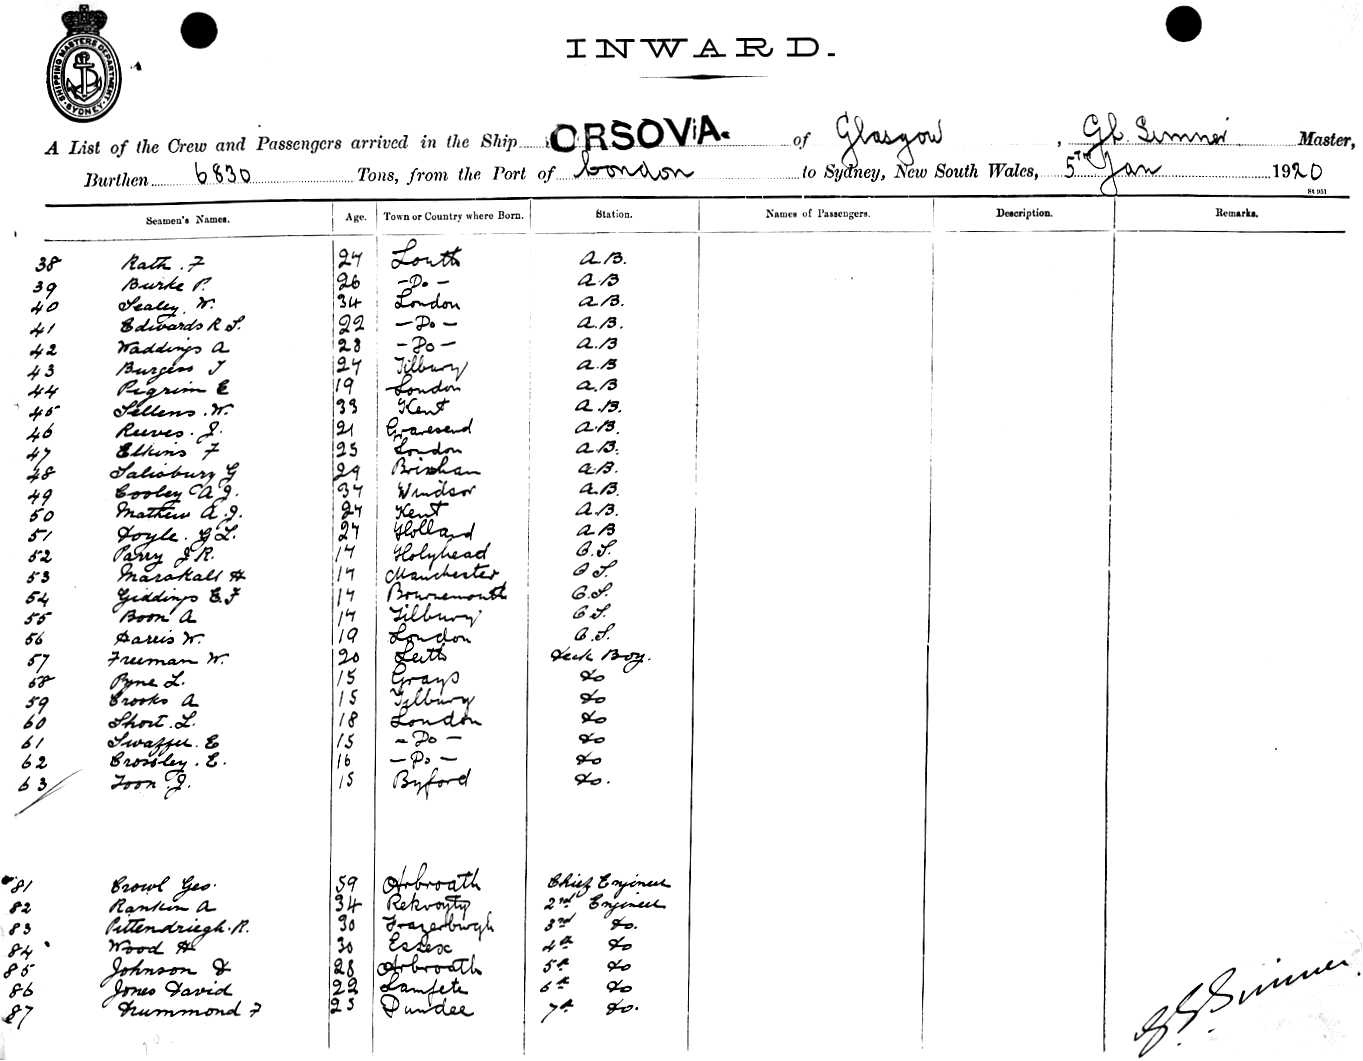 SHIPPING MASTERS DEPARTMENT SYDNEY
INWARD.
A List of the Crew and Passengers arrived in the Ship ORSOVA. of Glasgow, Master,
Burthen 6830 Tons, from the Port of London to Sydney, New South Wales, 5TH Jan 1920
St 951
Seamen's Names. Age. Town or Country where Born. Station. Names of Passengers. Description. Remarks.
38 Rath. F 27 Louth A.B.
39 Burke P. 26 -Do- A.B
40 Sealey. W. 34 London A.B.
41 Edwards R S. 22 -Do- A.B.
42 Waddings A 28 -Do- A.B
43 Burgess T 27 Tilbury A.B
44 Pigrim E 19 London A.B
45 Sellens. W. 33 Kent A.B.
46 Reeves. J. 21 Gravesend A.B.
47 Elkins F 25 London A.B.
48 Salisbury G 29 Brixham A.B.
49 Cooley A J. 37 Windsor A.B.
50 Mathew A.J. 27 Kent A.B.
51 Doyle. G L. 27 Holland A B
52 Parry J R. 17 Holyhead O.S.
53 Marshall H 17 Manchester O S.
54 Giddings E F 17 Bournemouth O.S.
55 Boon A 17 Tilbury O S.
56 Harris W. 19 London O.S.
57 Freeman W. 20 Leith Deck Boy.
58 Pyne L. 15 Grays do
59 Crooks A 15 Tilbury do
60 Short. L. 18 London do
61 Swaffer. E 15 -Do- do
62 Crossley. E. 16 -Do- do
63 Toon J. 15 Byford do.
81 Crowl Geo. 59 Arbroath Chief Engineer
82 Rankin A 34 2nd Engineer
83 Pittendriegh. R. 30 Frazerburgh 3rd do.
84 Wood H 30 Essex 4th do
85 Johnson D 28 Arbroath 5th do
86 Jones David 22 6th do
87 Drummond F 25 Dundee 7th do.